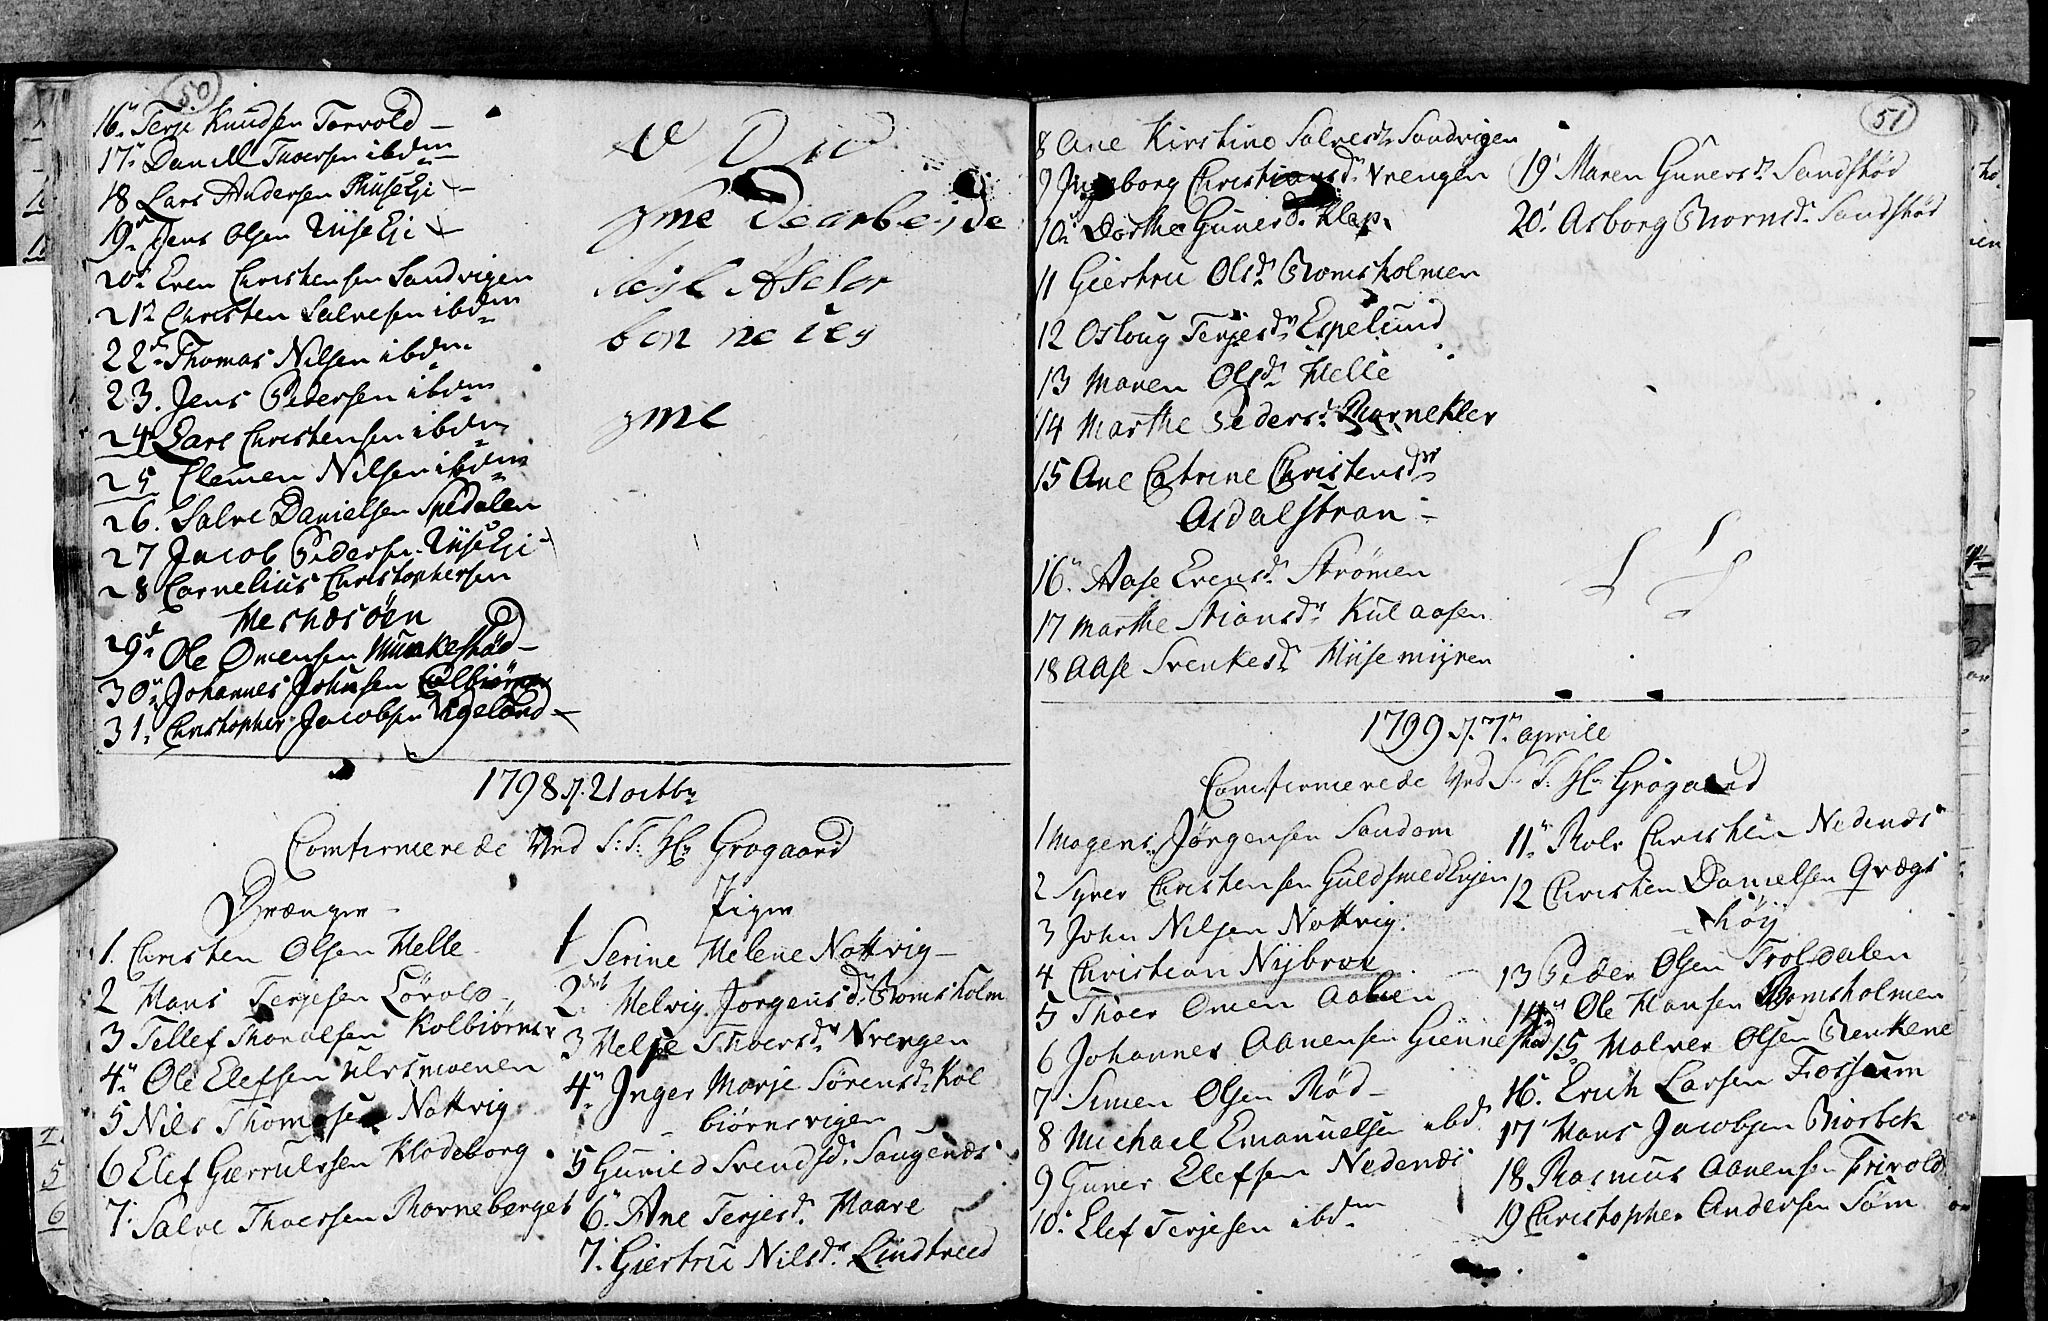 50
16 Terje Knudsen Torvold
17 Daniell Thoersen ibdm
18 Lars Andersen RiiseEje
19 Jens Olsen RiiseEje
20 Even Christensen Sandvigen
21 Christen Salvesen ibdm
22 Thomas Nilsen ibdm
23. Jens Pedersen ibdm
24 Lars Christensen ibdm
25 Clemen Nilsen ibdm
26. Salve Danielsen Spedalen
27 Jacob Pedersen RiiseEje
28 Cornelius Christophersen
Mesnæsöen
29 Ole Omensen Munkestöd
30 Johannes Johnsen Colbiörns
31. Christopher Jacobsen Vigeland
yme dearbeide
bon ne ieg
yme
1798 d. 21 octbr
Comfirmerede Ved S: T: Hr Grogaard
Drænger
1. Christen Olsen Helle
2 Hans Terjesen Lövold
3 Tellef Thoralsen Kolbiörnsv
4 Ole Elefsen Ulvsmoenen
5 Nils Thomasen Nattvig
6 Elef Gierrulssen Klodeborg
7. Salve Thoersen Thorneberget
Piger
1 Serine Helene Nattvig
2 Helvig Jorgensdr Bomsholm
3 Helje Thoersdr Vrengen
4 Inger Marje Sörensdr Kol
biörnsvigen
5 Gunild Svendsdr Saugenæs
6 Ane Terjesdr Haave
7. Giertru Nilsdr Lindtveed
51
8 Ane Kirstine Salvesdr Sandvigen
9 Ingeborg Christiansdr Vrengen
10 Dorthe Gunersdr Klep
11 Giertru Olsdr Bomsholmen
12 Osloug Terjesdr Espelund
13 Maren Olsdr Helle
14 Marthe Pedersdr Barnekler
15 Ane Catrine Christensdr
Asdalstran
16 Aase Evensdr Strömen
17 Marthe Stiansdr Kulaasen
18 Aase Svenkesdr Hiisemijren
19 Maren Gunersdr Sandstöd
20. Asborg Biornsdr Sandstöd
1799 d. 7 aprill
Comfirmerede Ved S. T. Hr Grogaard
1 Mogens Jörgensen Sandom
2 Syver Christensen GuldsmedEngen
3 John Nilsen Nattvig.
4 Christian Nijbroe
5 Thoer Omen Aalien
6 Johannes Aanensen Giennestöd
7 Simen Olsen Röd
8 Michael Emanuelsen ibd
9 Guner Elefsen Nedenæs
10 Elef Terjesen ibdm
11 Rolv Christen Nedenæs
12 Christen Danielsen Grægs
höij
13 Peder Olsen Troldalen
14 Ole Hansen Bomsholmen
15 Halver Olsen Benkene
16. Erich Larsen Fossum
17 Hans Jacobsen Biorbek
18 Rasmus Aanensen Frivold
19 Christopher Andersen Söm